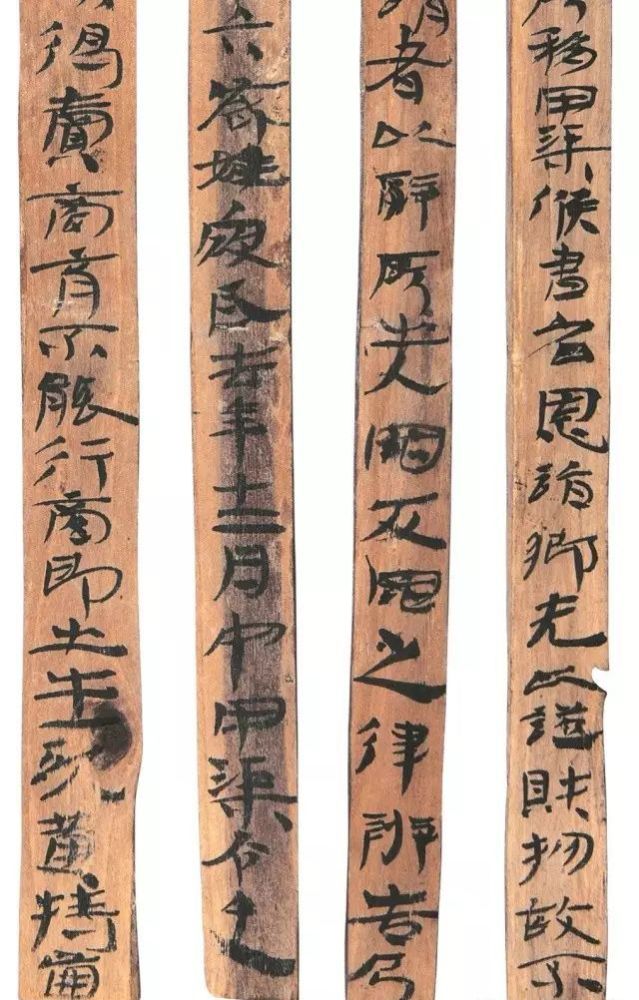 所移甲渠候書召恩詣鄉先以證財物故不
請者以辭所出入罪反罪之律辨告乃
六歲姓寇氏去年十二月中甲渠令史
得賣商育不能行商即出牛一頭黃特齒